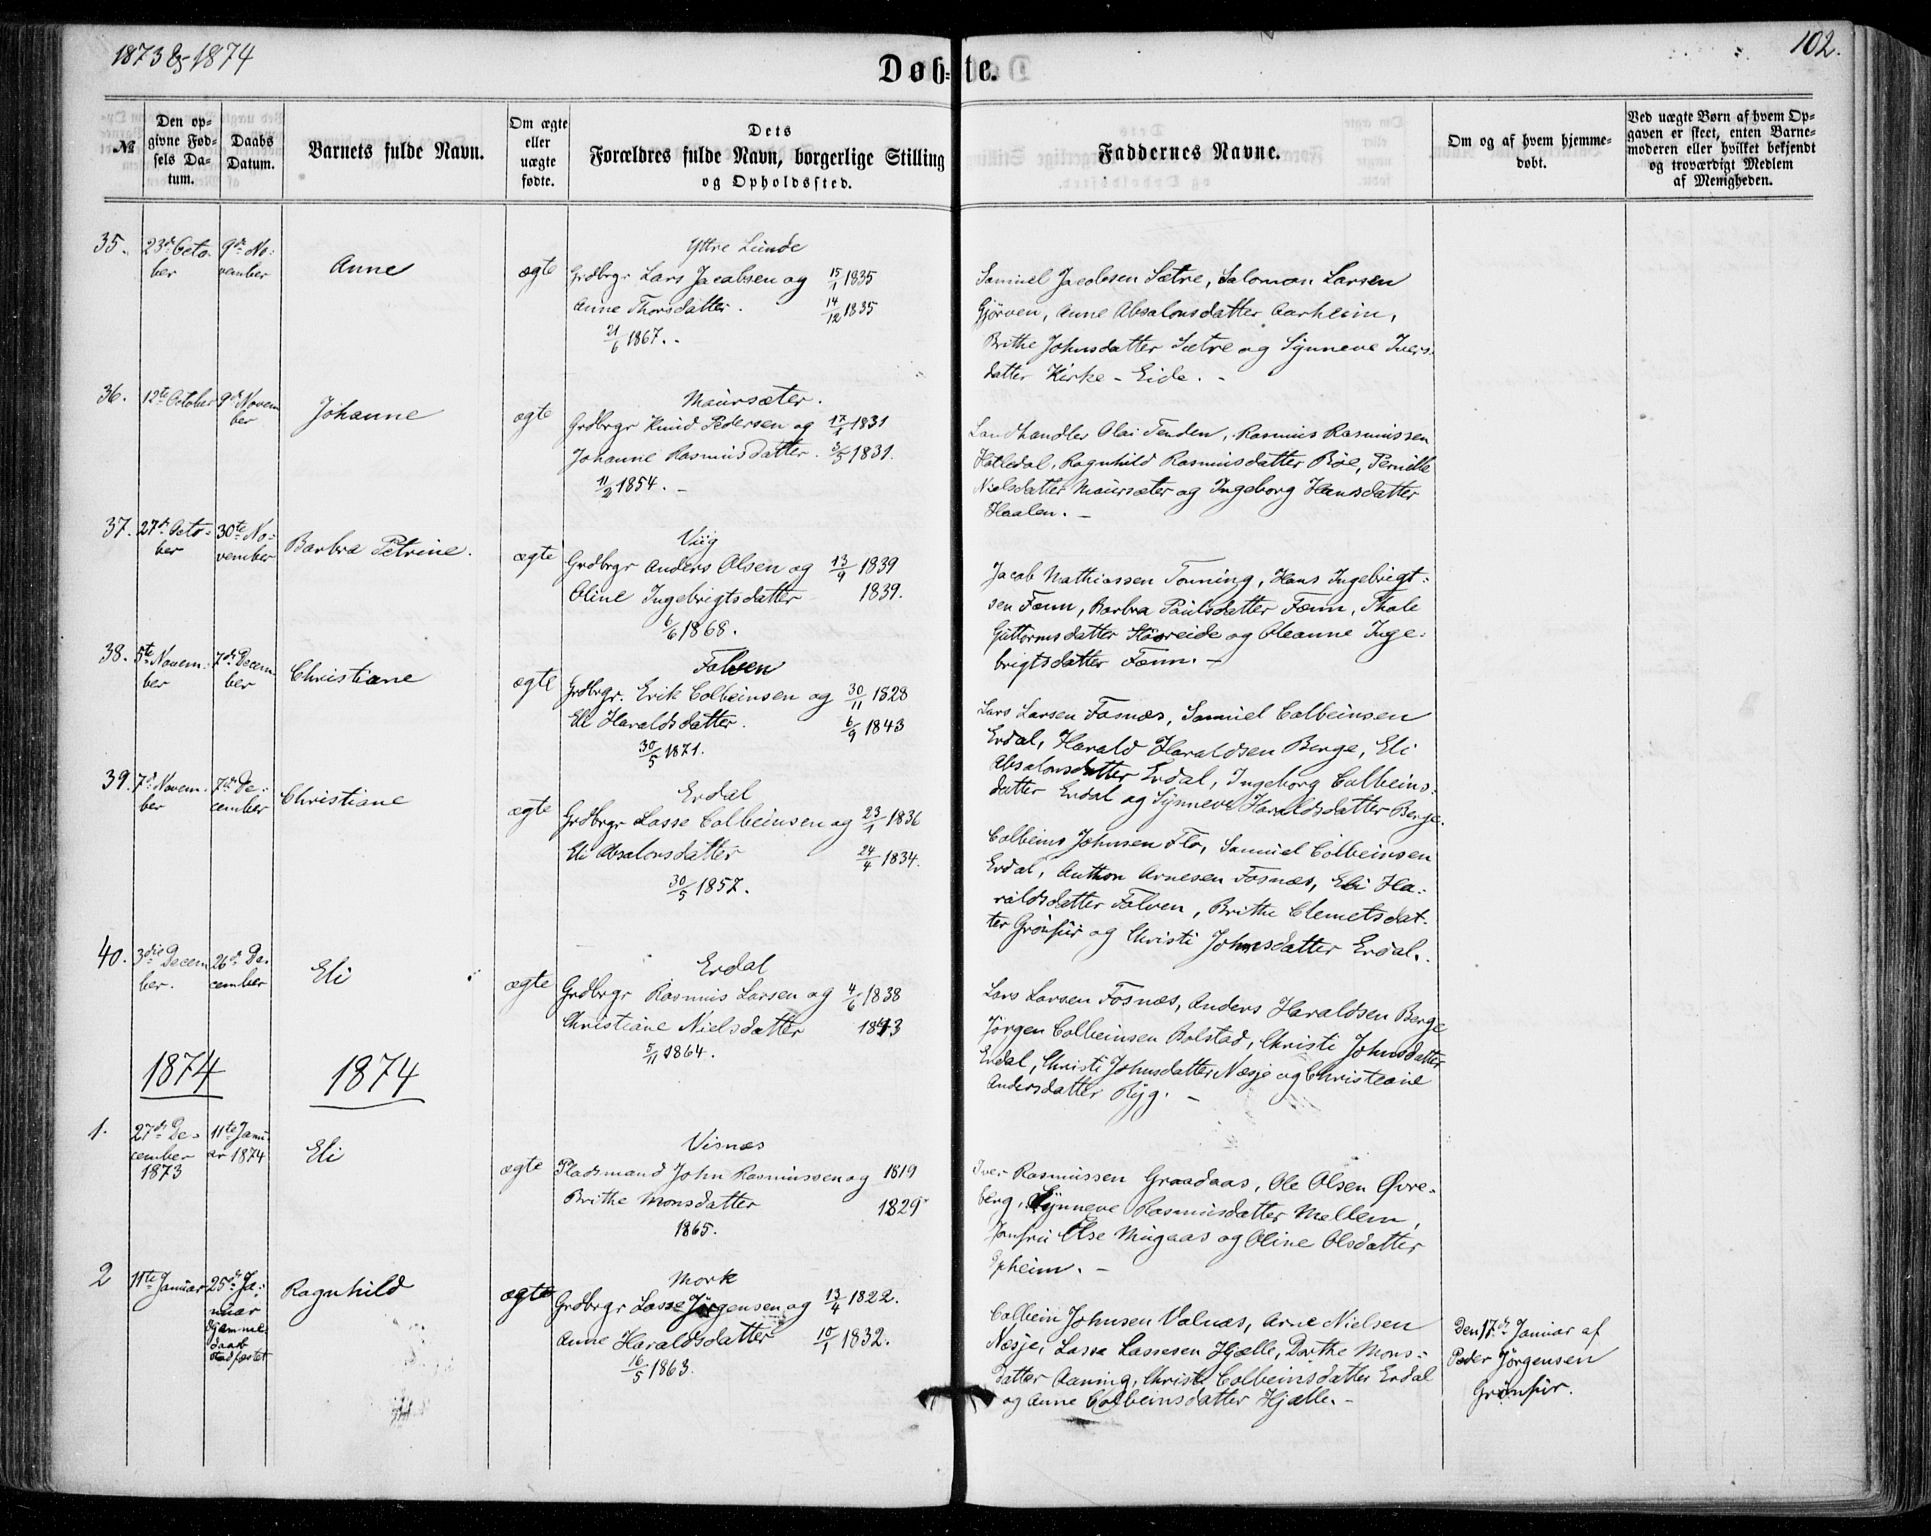 1873 & 1874
102.
Døb=te.
№
Den op-
givne Fød-
sels Da-
tum.
Daabs
Datum.
Barnets fulde Navn.
Om ægte
eller
uægte
fødte.
Dets
Forældres fulde Navn, borgerlige Stilling
og Opholdssted.
Faddernes Navne.
Om og af hvem hjemme-
døbt.
Ved uægte Børn af hvem Op-
gaven er skeet, enten Barne-
moderen eller hvilket bekjendt
og troværdigt Medlem
af Menigheden.
35.
23de Octo-
ber
9de No-
vember
Anne
ægte
Ytre Lunde
Grdbrgr Lars Jacobsen og 15/1 1835
Anne Thorsdatter. 14/12 1835
21/6 1867.
Samuel Jacobsen Sætre, Salomon Larsen
Gjørven, Anne Absalonsdatter Aarheim,
Brithe Johnsdatter Sætre og Synneve Ivers-
datter Kirke-Eide.
36.
12te October
9de Novem
ber
Johanne
ægte
Maursæter.
Grdbrgr Knud Pedersen og 17/1 1831
Johanne Rasmusdatter. 3/5 1831.
11/2 1854.
Landhandler Olai Tenden, Rasmus Rasmussen
Hatledal, Ragnhild Rasmusdatter Bøe, Pernille
Nielsdatter Maursæter og Ingeborg Hansdatter
Haalen.
37.
27de Octo-
ber
30te No-
vember
Barbra Petrine.
ægte
Viig
Grdbrgr Anders Olsen og 13/9 1839
Oline Ingebrigtsdatter 1839.
6/6 1868.
Jacob Mathiassen Tonning, Hans Ingebrigt-
sen Fænn, Barbra Paulsdatter Fænn, Thale
Guttormsdatter Støreide og Oleanne Inge-
brigtsdatter Fænn.
38.
5te Novem-
ber
7de Decem
ber
Christiane
ægte
Folven
Grdbrgr. Erik Colbeinsen og 30/11 1828
Eli Haraldsdatter. 6/9 1843
30/5 1871.
Lars Larsen Fosnæs, Samuel Colbeinsen
Erdal, Harald Haraldsen Berge, Eli
Absalonsdatter Erdal, Ingeborg Colbeins-
datter Erdal og Synneve Haraldsdatter Berge.
39.
7de Novem-
ber
7de De-
cember
Christiane
ægte
Erdal
Grdbrgr Lasse Colbeinsen og 23/1 1836
Eli Absalonsdatter 24/4 1834.
30/5 1857.
Colbeins Johnsen Flo, Samuel Colbeinsen
Erdal, Anthon Arnesen Fosnæs, Eli Ha-
raldsdatter Folven, Brithe Clemetsdat-
ter Grønfur og Christi Johnsdatter Erdal.
40.
3die Decem
ber.
26de De-
cember
Eli
ægte
Erdal
Grdbrgr Rasmus Larsen og 4/6 1838
Christiane Nielsdatter 1843
5/11 1864.
Lars Larsen Fosnæs, Anders Haraldsen Berge
Jørgen Colbeinsen Bolstad, Christi Johnsdatter
Erdal, Christi Johnsdatter Næsje og Christiane
Andersdatter Ryg.
1874
1874
1.
27de De-
cember
1873
11te Janu-
ar 1874
Eli
ægte
Visnæs
Pladsmand John Rasmussen og 1819
Brithe Monsdatter 1829
1865.
Iver Rasmussen Graadaas, Ole Olsen Øvre-
berg, Synneve Rasmusdatter Mellem,
Jomfru Else Mugaas og Oline Olsdatter
Opheim.
2
11te Januar
25de Ja-
nuar
Hjemme
daab
stadfæstet
Ragnhild
ægte
Mork
Grdbrgr Lasse Jørgensen og 13/4 1822.
Anne Haraldsdatter 10/1 1832.
16/5 1863.
Colbein Johnsen Valnæs, Arne Nielsen
Næsje, Lasse Lassesen Hjælle, Dorthe Mons-
datter Aaning, Christi Colbeinsdatter Erdal
og Anne Colbeinsdatter Hjælle.
Den 17de Januar af
Peder Jørgensen
Grønfur.